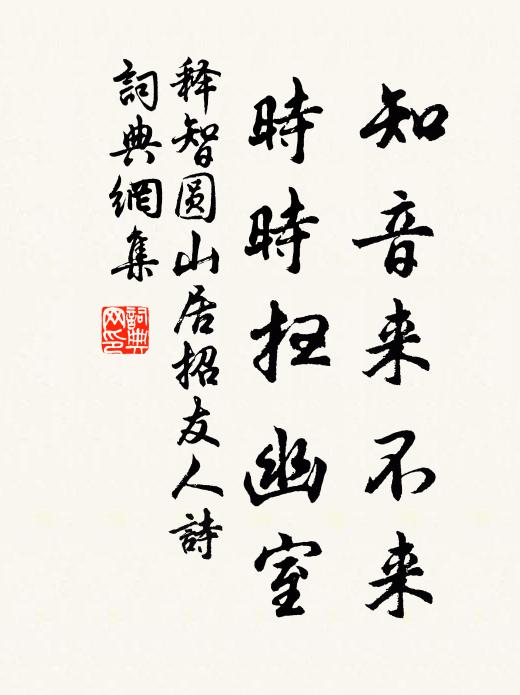 知音来不来
時時扫幽室
释智圆山居招友人詩
詞典網集
詞典
网印